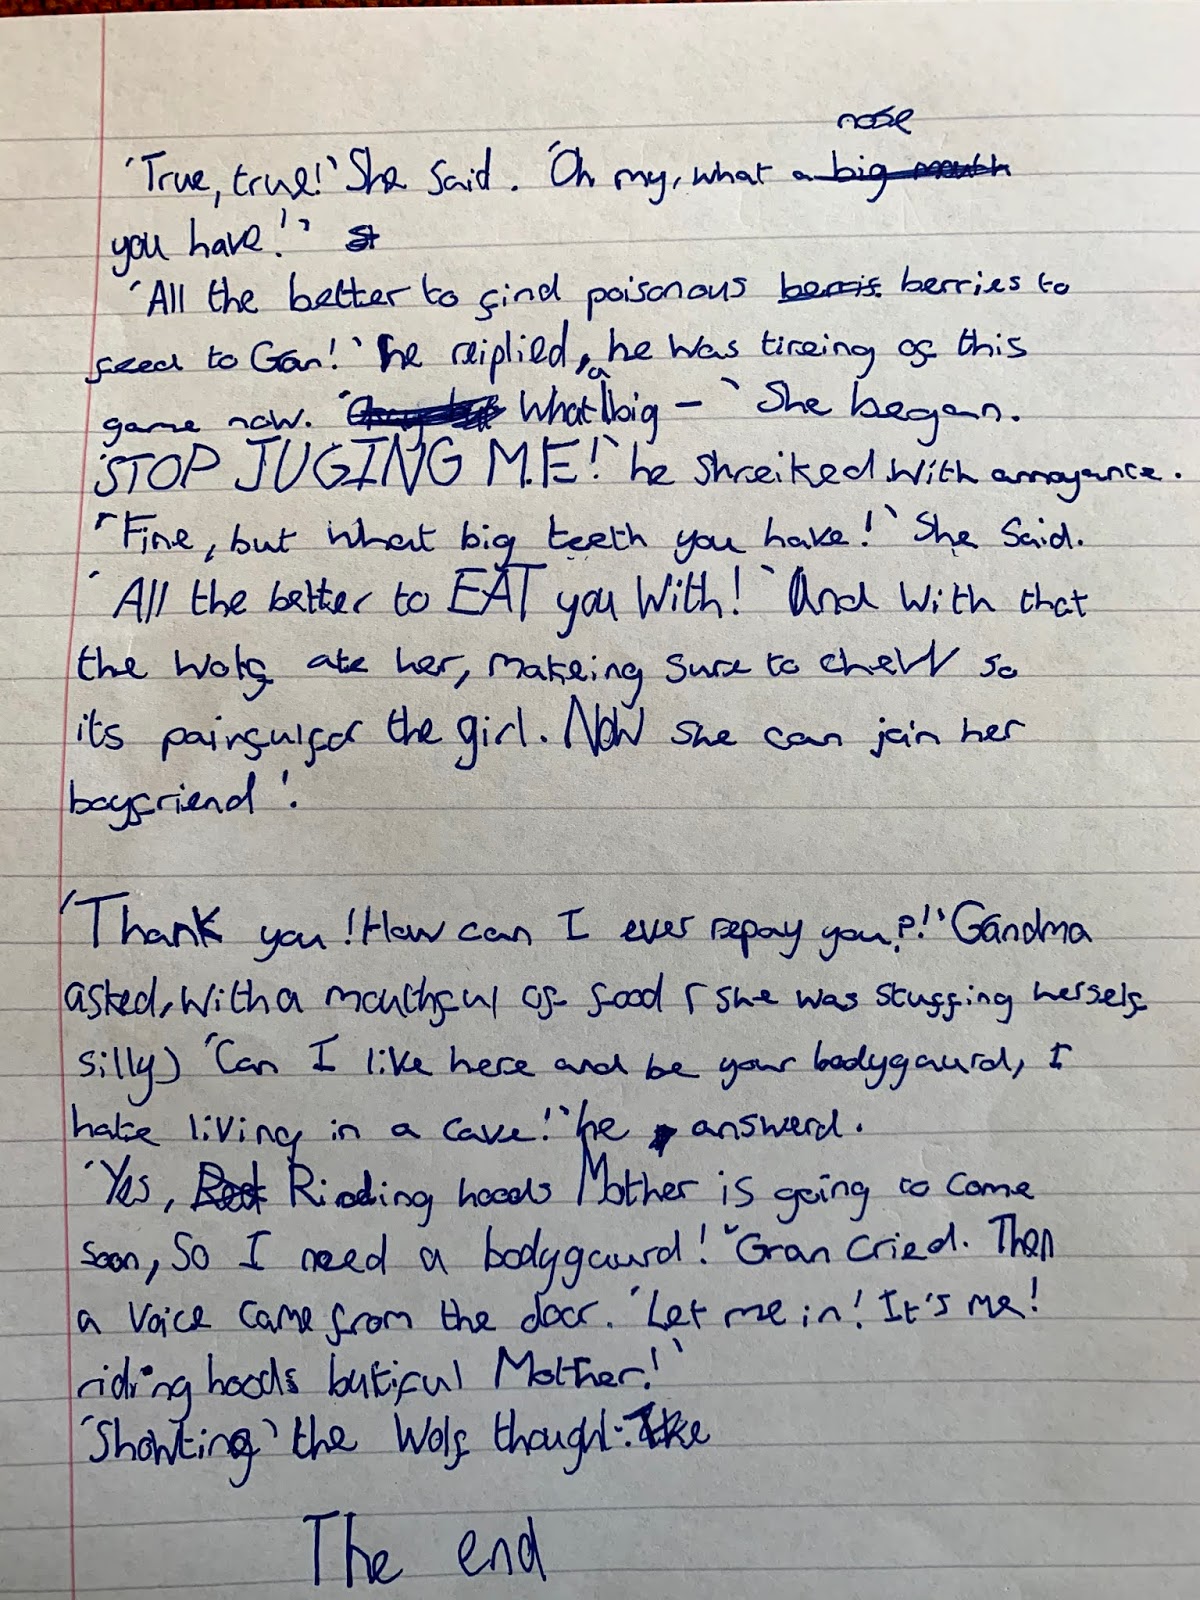 nose
'True, true!' She said. 'Oh my, what a big mouth
you have!' St
'All the better to find poisonous berris berries to
feed to Gran!' he reiplied, he was tireing of this
game now. 'What a big – ' She began.
'STOP JUGING ME!' he shreiked with annoyance.
'Fine, but what big teeth you have!' She said.
'All the better to EAT you with!' And with that
the wolf ate her, makeing sure to chew so
its painful for the girl. 'Now she can join her
boyfriend'.
'Thank you! How can I ever repay you?!' Gandma
asked, with a mouthful of food (she was stuffing herself
silly) 'Can I like here and be your bodygaurd, I
hate living in a cave!' he answerd.
'Yes, Red Rideing hoods Mother is going to come
soon, so I need a bodygaurd!' Gran cried. Then
a voice came from the door. 'Let me in! It's me!
riding hoods butiful Mother!'
'Showting' the wolf thought. The
The end